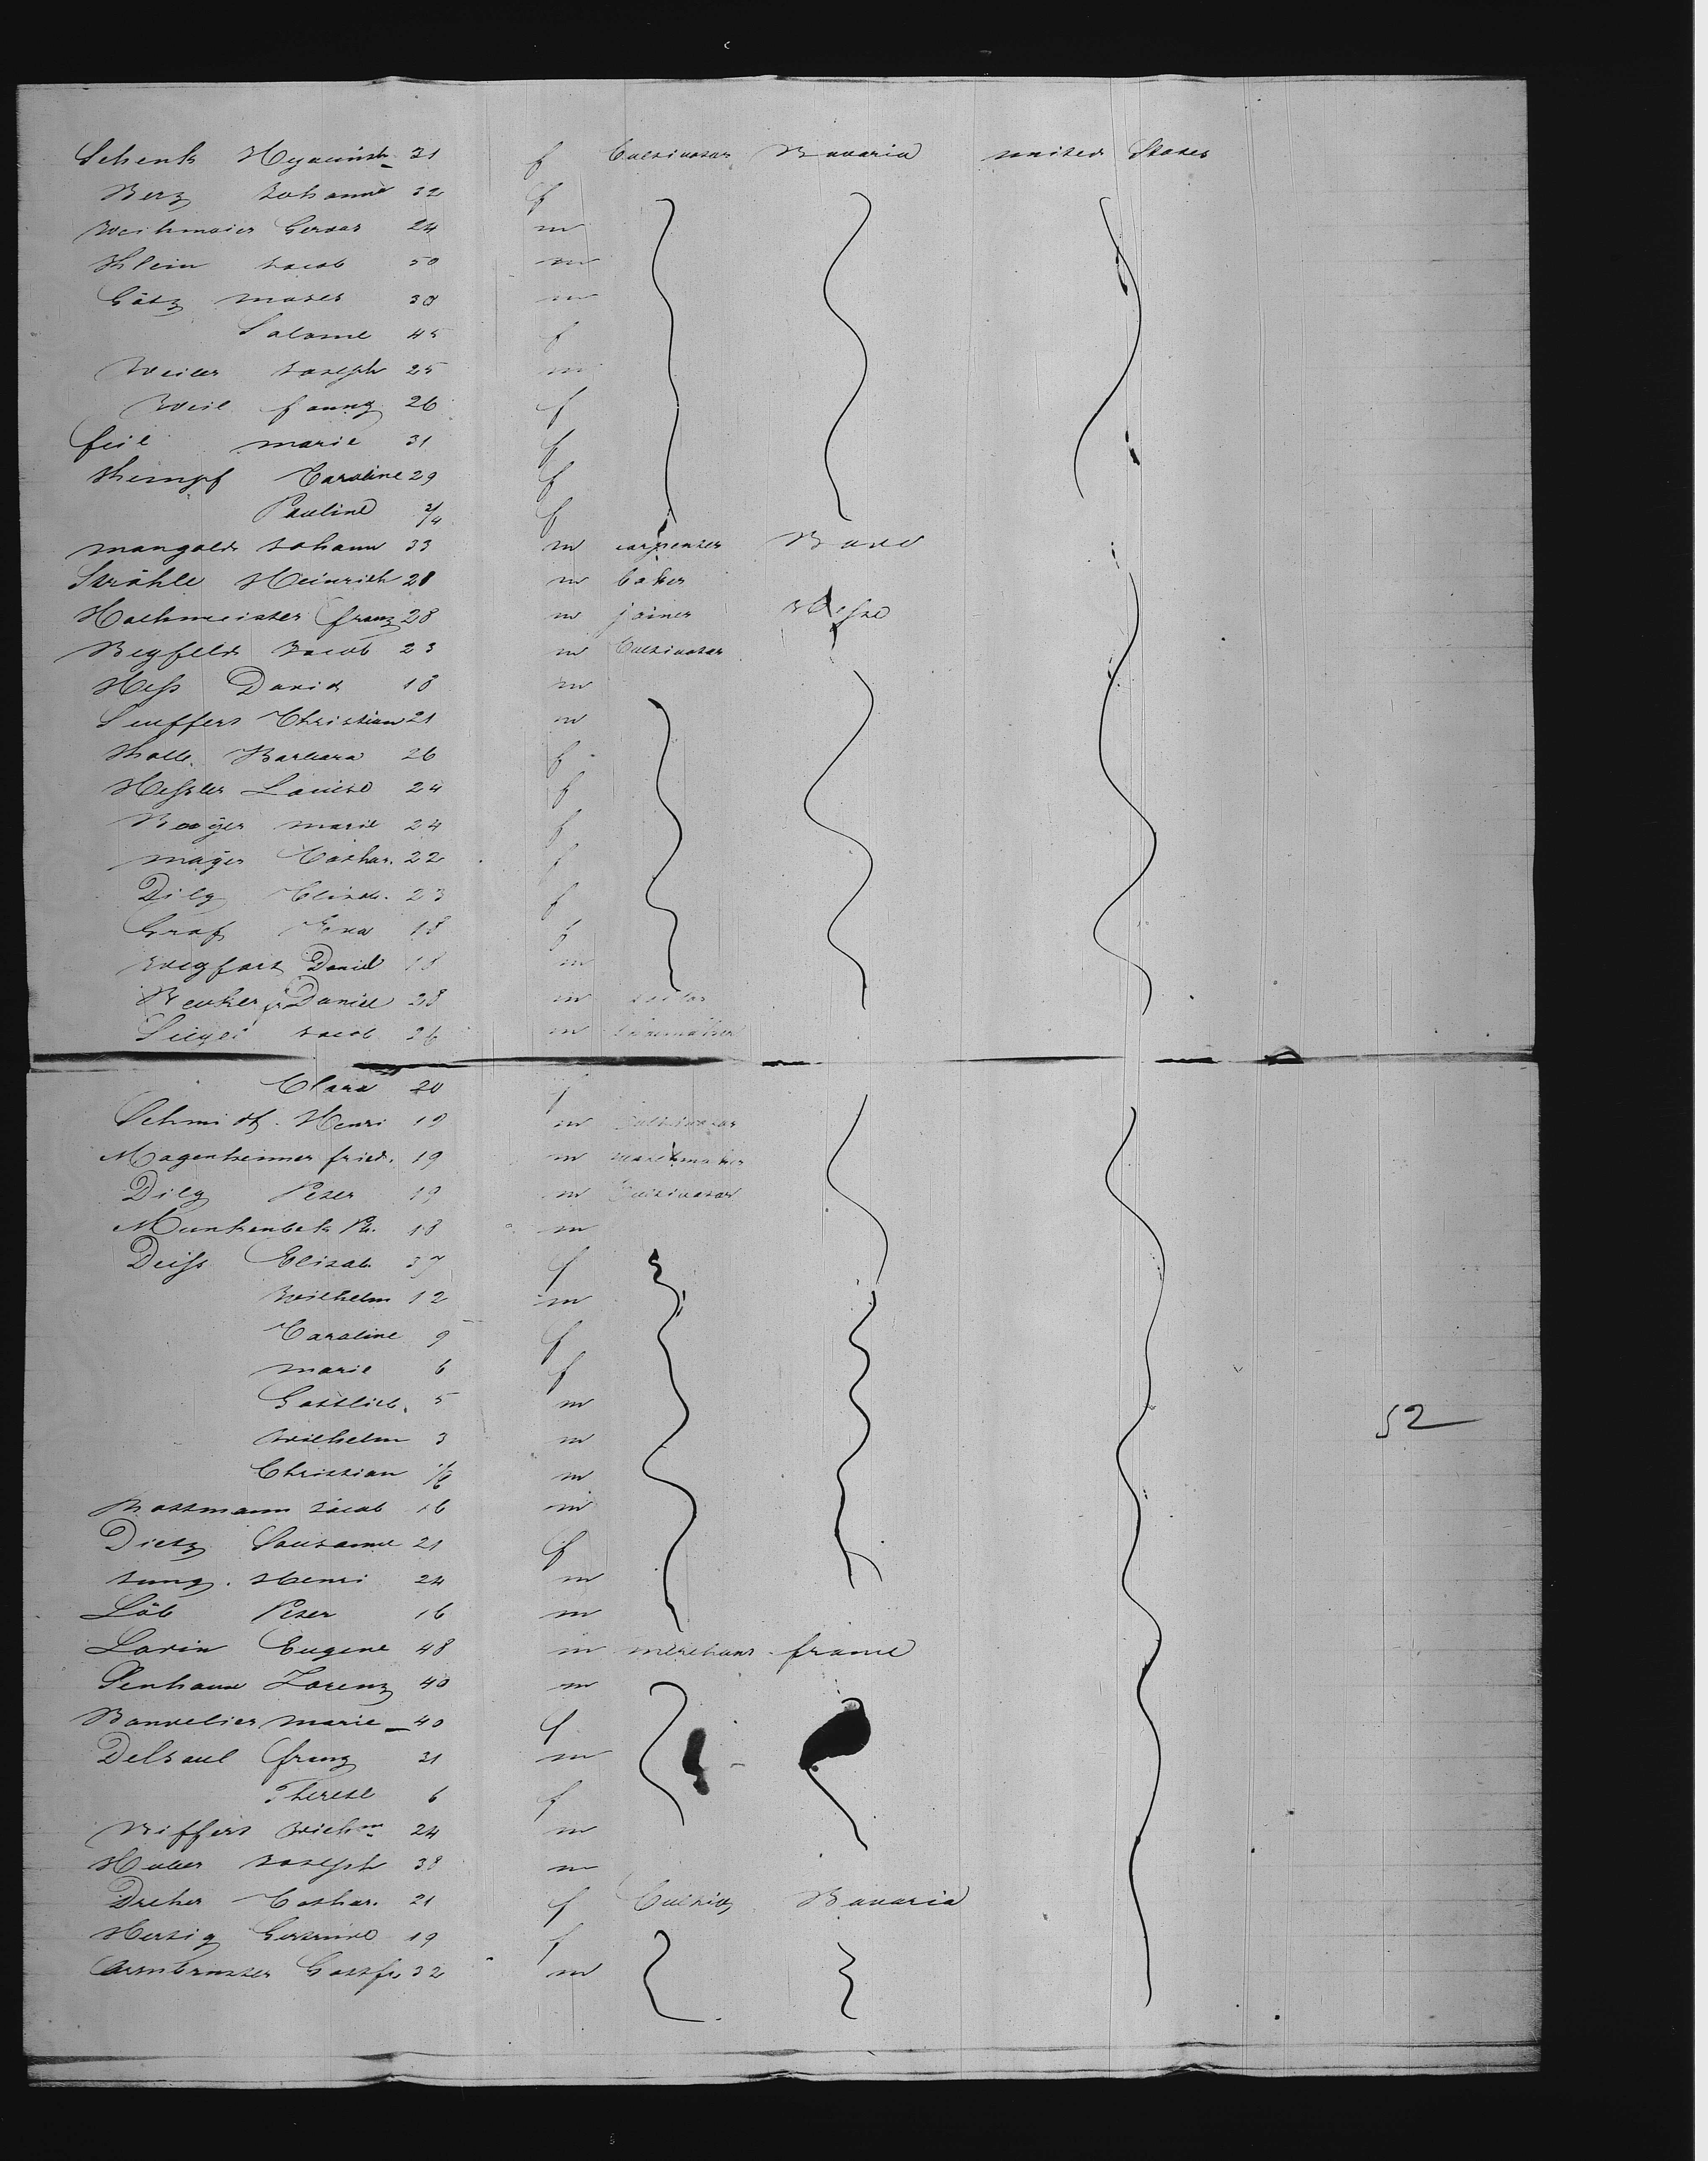 Schenk Hyacinth 31 f Cultivator Bavaria united States
Berz Johanna 32 f
Weihmaier Gervas 24 m
Klein Jacob 50 m
Götz moses 38 m
Salome 45 f
Weiler Joseph 25 m
Weil fanny 26 f
feil marie 31 f
Kempf Caroline 29 f
Pauline 3/4 f
mangold Johann 33 m carpenter Bade
Strähle Heinrich 28 m baker
Hochmeister franz 28 m joiner Hesse
Begfeld Jacob 23 m Cultivator
Hess David 18 m
Seuffert Christian 21 m
Barbara 26 f
Hessler Louise 24 f
marie 24 f
mayer Cathar. 22 f
Dilg Elisab. 23 f
Graf Eva 18 f
Daniel 18 m
Daniel 28 m
Siegel Jacob 26 m
Clara 20 f
Schmidt Henri 19 m Cultivator
Magenheimer fried. 19 m
Dilg Peter 19 m Cultivator
Munkenbek Ph. 18 m
Deiss Elisab 37 f
Wilhelm 12 m
Caroline 9 f
marie 6 f
Gottlieb. 5 m
Wilhelm 3 m
Christian m
Jacob 16 m
Dietz Sousanne 21 f
Jung. Henri 24 m
Löb Peter 16 m
Lorin Eugene 48 m merchant france
Lorenz 40 m
Bandelier marie 40 f
Delsaul franz 31 m
Therese 6 f
Wilhm 24 m
Huber Joseph 38 m
Dreher Cathar. 21 f Cultiv Bavaria
Hertig Gertrude 19 f
Armbruster Gottfr. 32 m
52